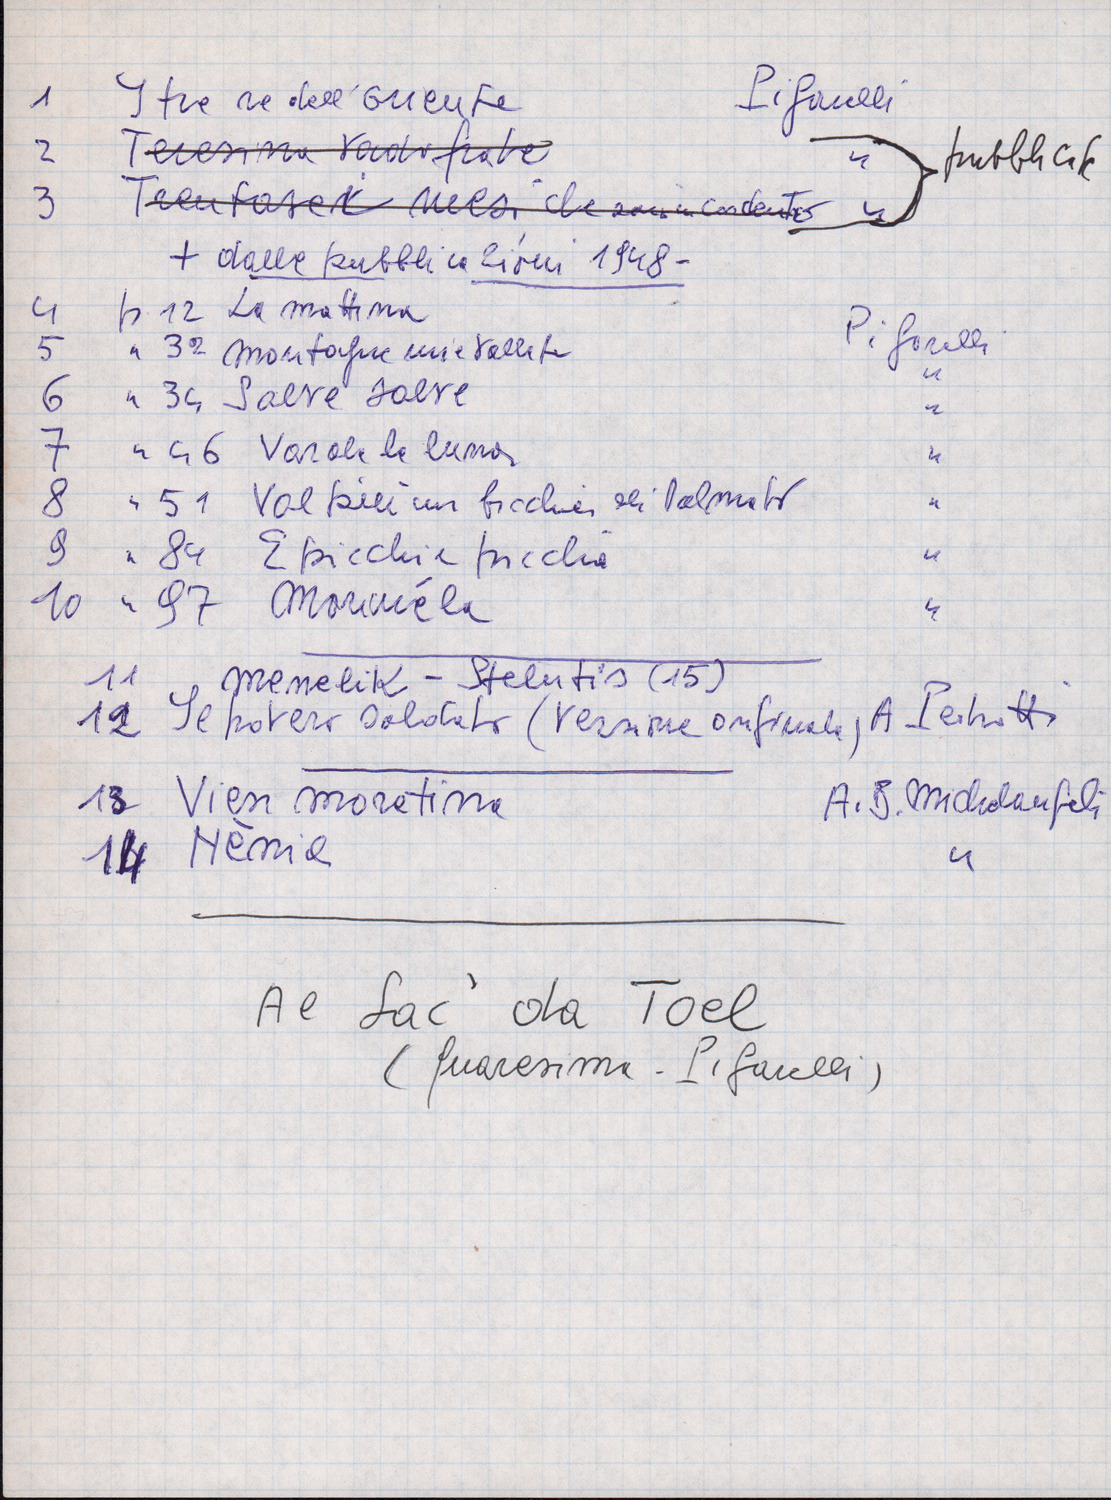 1 I tre re dell'oriente Pigarelli
2 Teresina Vardo frate "
3 Trentasei mesi che "
pubblicate
+ dalle pubblicazioni 1948 -
4 p 12 La mattina
5 " 32 Montagne mie vallate Pigarelli
"
6 " 34 Salve salve "
7 " 46 Varda la luna "
8 " 51 Val più un bicchier di Dalmato "
9 " 84 E picchia picchia "
10 " 97 Morméla "
11 Menelik - Stelutis (15)
12 Il povero soldato (versione originale) A Pedrotti
13 Vien moretina A. B. Michelangeli
14 Nènia "
Al Sac' da Toel
(Quaresima - Pigarelli)